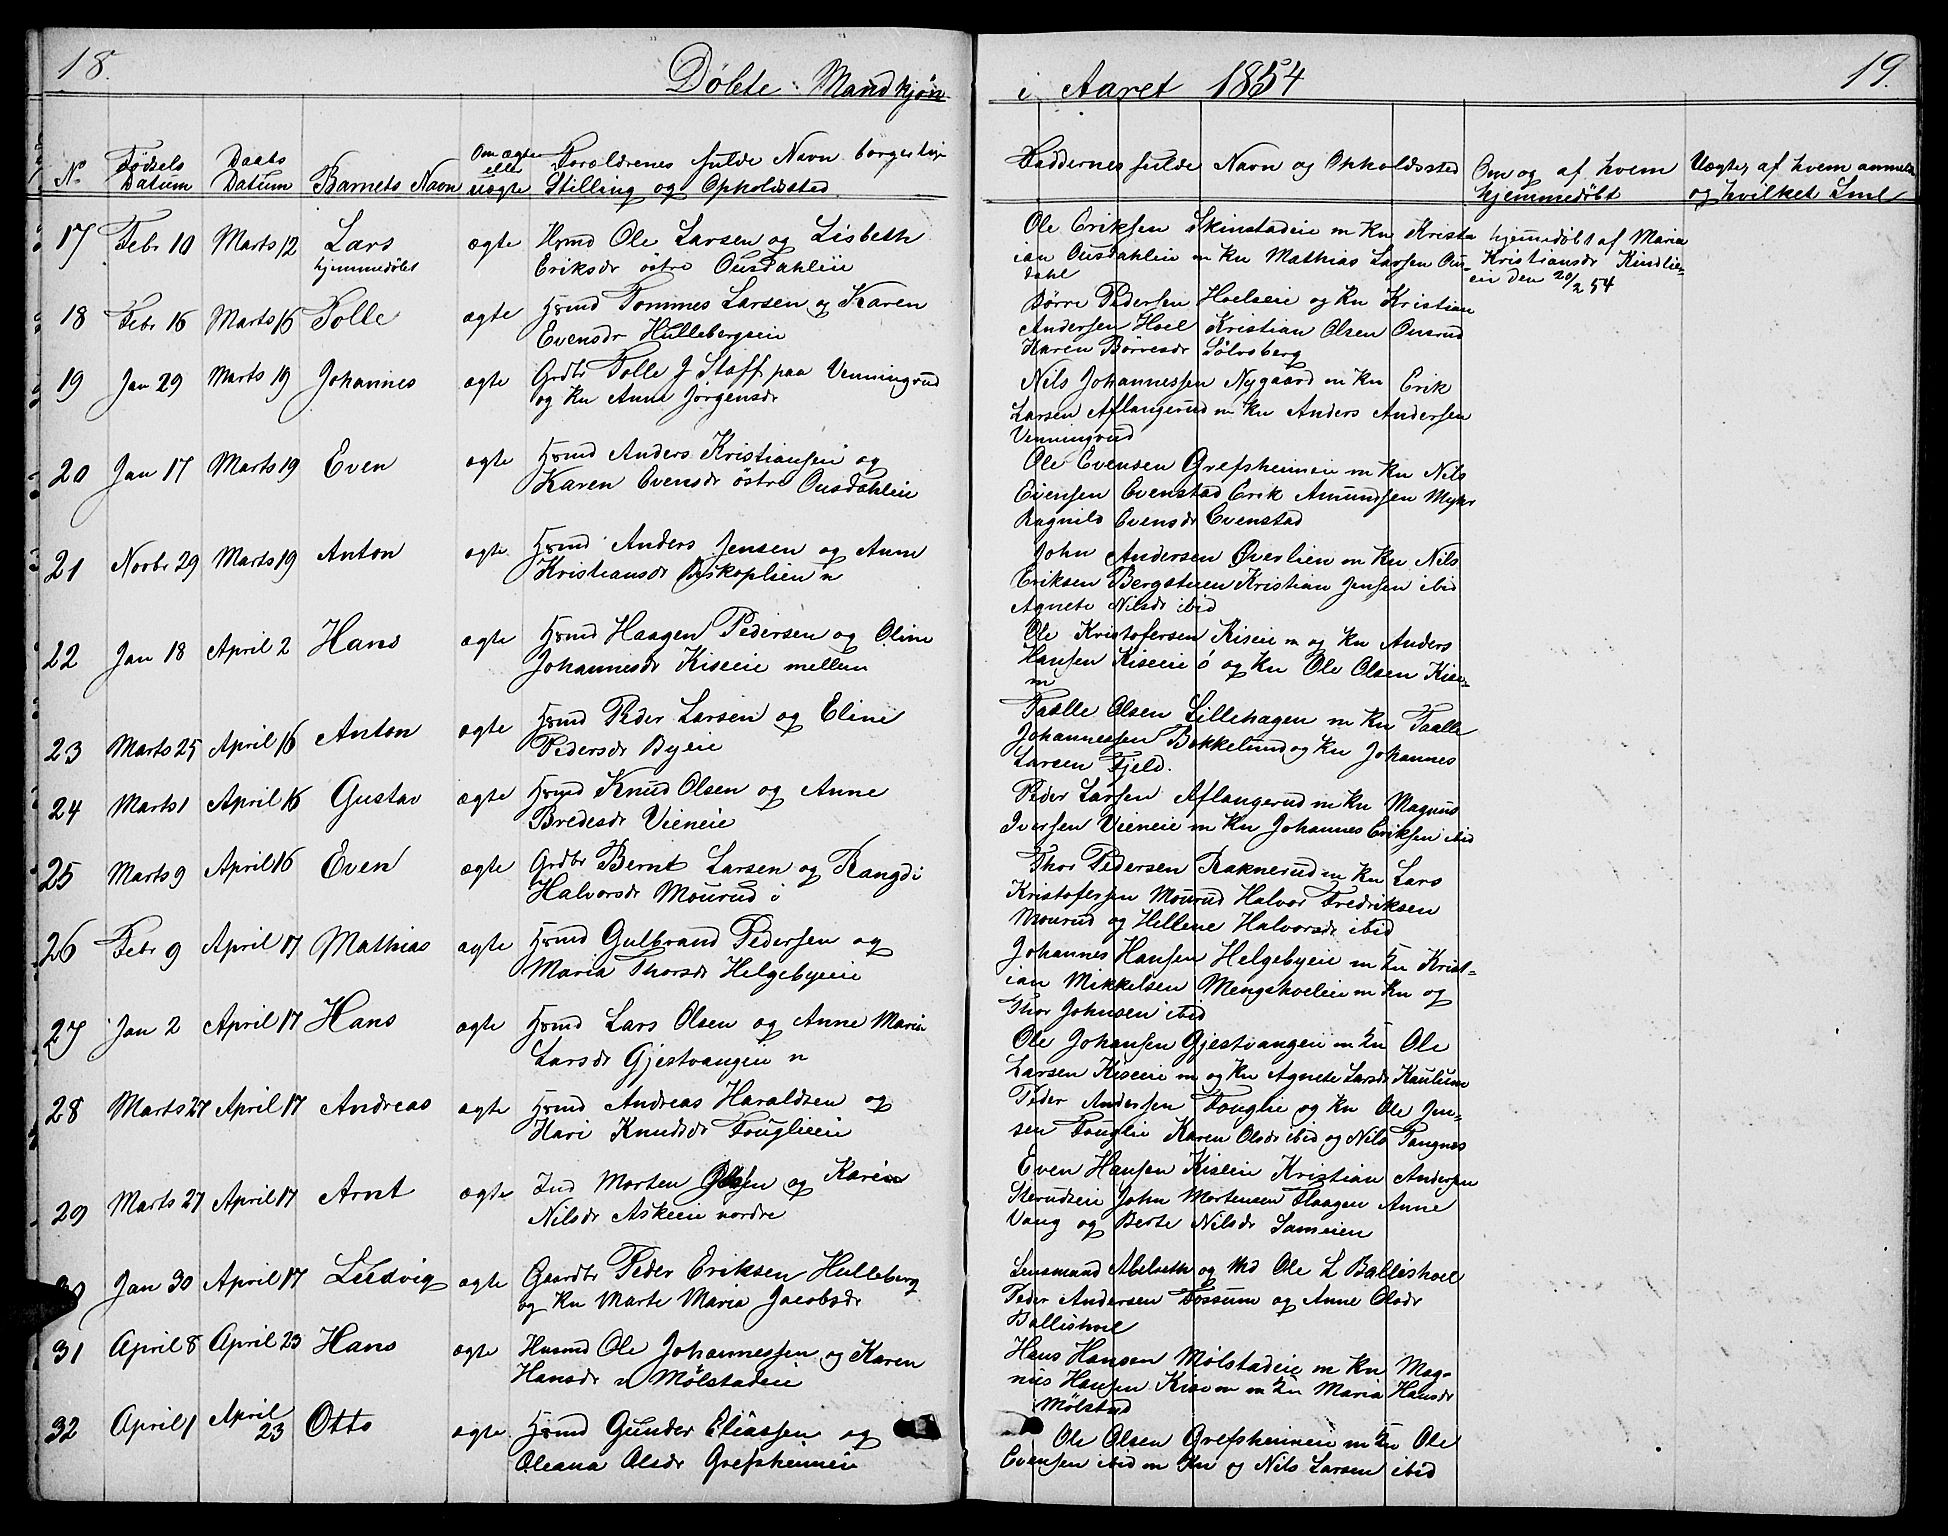 18.
Döbte Mandkjön
No Födsels Datum Daabs Datum Barnets Navn Om ægte eller uægte Forældrenes fulde Navn borgerlige Stilling og Opholdssted
17 Febr 10 Marts 12 Lars ægte Hsmd Ole Larsen og Lisbeth
hjemmedöbt Eriksdr östre Ousdahleie
18 Febr 16 Marts 16 Tolle ægte Hsmd Tommes Larsen og Karen
Evensdr Hullebergeie
19 Jan 29 Marts 19 Johannes ægte Grdbr Tolle J Staff paa Venningrud
og Kn Anna Jörgensdr
20 Jan 17 Marts 19 Even ægte Hsmd Anders Kristiansen og
Karen Evensdr östre Ousdahleie
21 Novbr 29 Marts 19 Anton ægte Hsmd Anders Jensen og Anne
Kristiansdr n
22 Jan 18 April 2 Hans ægte Hsmd Haagen Pedersen og Oline
Johannesdr Kiseie mellem
23 Marts 25 April 16 Anton ægte Hsmd Peder Larsen og Eline
Pedersdr Byeie
24 Marts 1 April 16 Gustav ægte Hsmd Knud Olsen og Anne
Bredesdr Vieneie
25 Marts 9 April 16 Even ægte Grdbr Bernt Larsen og Rangdi
Halvorsdr Mourud
26 Febr 9 April 17 Mathias ægte Hsmd Gulbrand Pedersen og
Maria Thorsdr Helgebyeie
27 Jan 2 April 17 Hans ægte Hsmd Lars Olsen og Anne Maria
Larsdr Gjestvangeie n
28 Marts 27 April 17 Andreas ægte Hsmd Andreas Haraldsen og
Kari Knudsdr Fouglieeie
29 Marts 27 April 17 Arnt ægte Ind Morten Olsen og Karen
Nilsdr Askeeie nordre
30 Jan 30 April 17 Ludvig ægte Gaardbr Peder Eriksen Hulleberg
og Kn Marte Maria Jacobsdr
31 April 8 April 23 Hans ægte Husmd Ole Johannessen og Karen
Hansdr n Mölstadeie
32 April 1 April 23 Otto ægte Hsmd Gunder Eliassen og
Oleana Olsdr Grefsheimeie
19.
i Aaret 1854
Faddernes fulde Navn og Opholdssted Om og af hvem hjemmedöbt Uægte, af hvem anmeldt og hvilket Sml
Ole Eriksen Skinstadeie m Kn Krist
ian Ousdahleie m Kn Mathias Larsen Ous-
dahl
hjemedöbt af Maria
Kristiansdr Kindlie-
eie den 20/2 54
Börre Pedersen Hoelseie og Kn Kristian
Andersen Hoel Kristian Olsen Ousrud
Karen Börresdr Sölvsberg
Nils Johannessen Nygaard m Kn Erik
Larsen Aflangerud m Kn Anders Andersen
Venningrud
Ole Evensen Grefsheimeie m Kn Nils
Evensen Evenstad Erik Amundsen Myhr
Ragnild Evensdr Evenstad
John Andersen Överlien m Kn Nils
Eriksen Bergsteien Kristian Jensen ibid
Agnete Nilsdr ibid
Ole Kristofersen Kiseie m og Kn Anders
Hansen Kiseie ö og Kn Ole Olsen Kise-
m
Taalle Olsen Lillehagen m Kn Taalle
Johannessen Bekkelund og Kn Johannes
Larsen Fjeld.
Peder Larsen Aflangerud m Kn Magnus
Iversen Vieneie m Kn Johannes Eriksen ibid
Thor Pedersen Raknerud m Kn Lars
Kristofersen Mourud Halvor Fredriksen
Mourud og Hellene Halvorsdr ibid
Johannes Hansen Helgebyeie m Kn Krist-
ian Mikkelsen Mengshoeleie m Kn og
Thor Johnsen ibid
Ole Johansen Gjestvangeie m Kn Ole
Larsen Kiseeie m og Kn Agnete Larsdr Kaulum
Peder Andersen Fouglie og Kn Ole Jen-
sen Fouglie Karen Olsdr ibid og Nils Tangnes
Even Hansen Kiseie Kristian Andersen
Skerudseie John Mortensen Haagen Anne
Vang og Berte Nilsdr Sameien
Lensmand Abelseth og Md Ole L Ballishoel
Peder Andersen Fossum og Anne Olsdr
Ballishoel
Hans Hansen Mölstadeie m Kn Mag-
nus Hansen Kise m m Kn Maria Hansdr
Mölstad
Ole Olsen Grefsheimeie m Kn Ole
Evensen ibid m Kn og Nils Larsen ibid